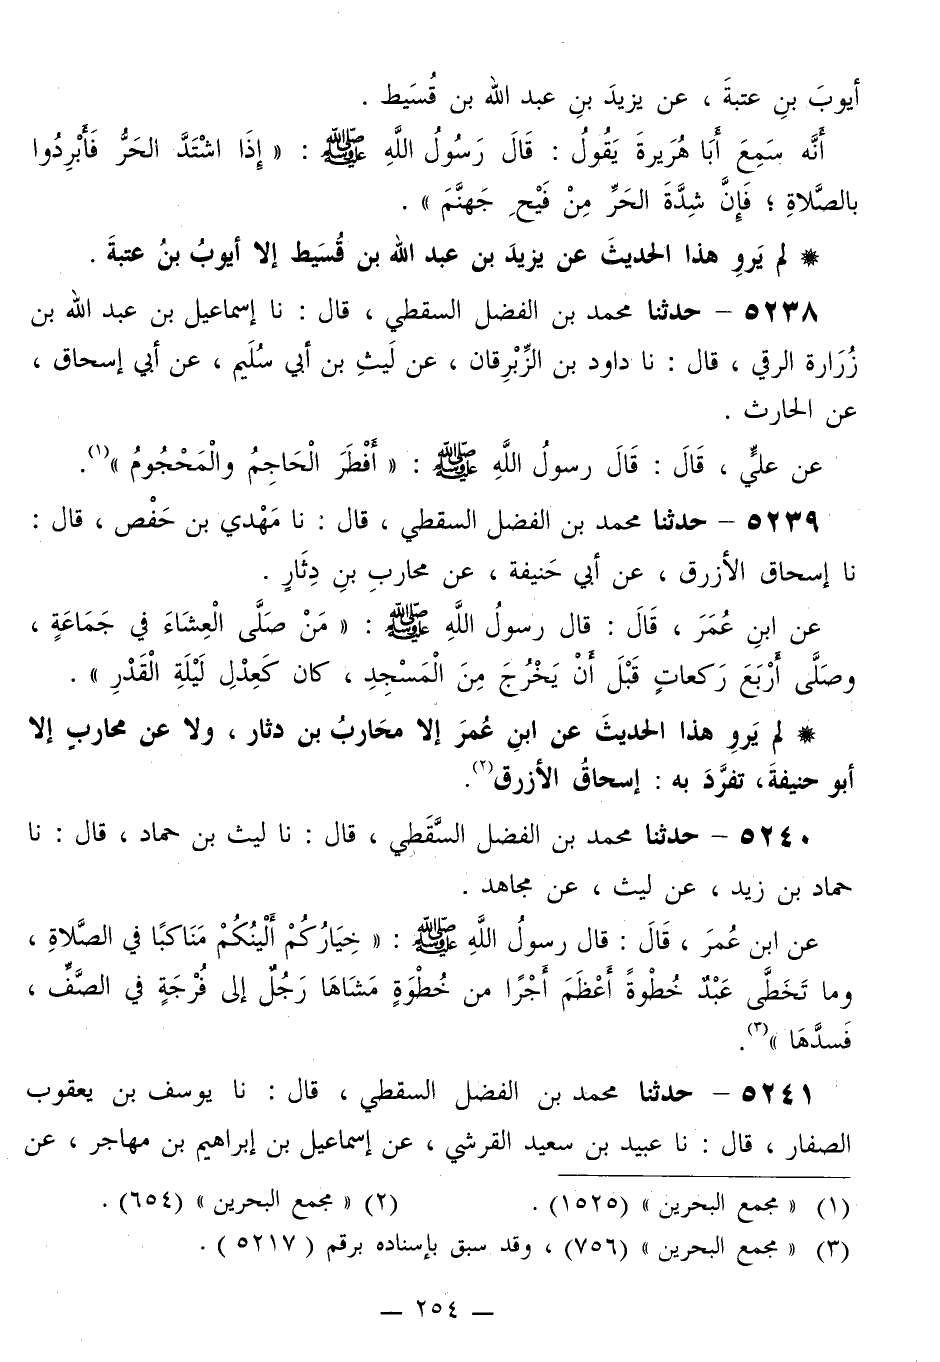 أيوبَ بنِ عتبةَ ، عن يزيدَ بنِ عبد الله بن قُسَيط .
أَنَّه سَمِعَ أَبَا هُرَيرةَ يَقُولُ : قَالَ رَسُولُ اللَّهِ ﷺ : « إِذَا اشْتَدَّ الحَرُّ فَأَبْرِدُوا
بالصَّلاةِ ؛ فَإِنَّ شِدَّةَ الحَرِّ مِنْ فَيْحِ جَهنَّمَ » .
* لم يَروِ هذا الحديثَ عن يزيدَ بن عبد الله بن قُسَيط إلا أيوبُ بنُ عتبةَ .
٥٢٣٨ – حدثنا محمد بن الفضل السقطي ، قال : نا إسماعيل بن عبد الله بن
زُرَارة الرقي ، قال : نا داود بن الزِّبْرِقان ، عن لَيثِ بن أبي سُلَيم ، عن أبي إسحاق ،
عن الحارث .
عن عليٍّ ، قَالَ : قَالَ رسولُ اللَّهِ ﷺ : « أَفْطَرَ الْحَاجِمُ والْمَحْجُومُ »(١).
٥٢٣٩ – حدثنا محمد بن الفضل السقطي ، قال : نا مَهْدي بن حَفْص ، قال :
نا إسحاق الأزرق ، عن أبي حَنيفة ، عن محاربِ بنِ دِثَارٍ .
عن ابنِ عُمَرَ ، قَالَ : قال رسولُ اللَّهِ ﷺ : « مَنْ صَلَّى الْعِشَاءَ في جَمَاعَةٍ ،
وصَلَّى أَرْبَعَ رَكعاتٍ قَبْلَ أَنْ يَخْرُجَ مِنَ الْمَسْجِدِ ، كان كَعِدْلِ لَيْلَةِ الْقَدْرِ » .
* لم يَروِ هذا الحديثَ عن ابنِ عُمرَ إلا محَاربُ بن دثار ، ولا عن محاربٍ إلا
أبو حنيفةَ، تفرَّدَ به : إسحاقُ الأزرق(٢).
٥٢٤٠ – حدثنا محمد بن الفضل السَّقَطي ، قال : نا ليث بن حماد ، قال : نا
حماد بن زيد ، عن ليث ، عن مجاهد .
عن ابن عُمرَ ، قَالَ : قال رسولُ اللَّهِ ﷺ : « خِيَارُكُمْ أَلْينُكُمْ مَنَاكبًا في الصَّلاةِ ،
وما تَخَطَّى عَبْدٌ خُطْوةً أَعْظَمَ أَجْرًا من خُطْوَةٍ مَشَاهَا رَجُلٌ إلى فُرْجَةٍ في الصَّفِّ ،
فَسدَّهَا »(٣).
٥٢٤١ – حدثنا محمد بن الفضل السقطي ، قال : نا يوسف بن يعقوب
الصفار ، قال : نا عبيد بن سعيد القرشي ، عن إسماعيل بن إبراهيم بن مهاجر ، عن
(١) « مجمع البحرين » (١٥٢٥) . (٢) « مجمع البحرين » (٦٥٤) .
(٣) « مجمع البحرين » (٧٥٦) ، وقد سبق بإسناده برقم ( ٥٢١٧ ) .
– ٢٥٤ –